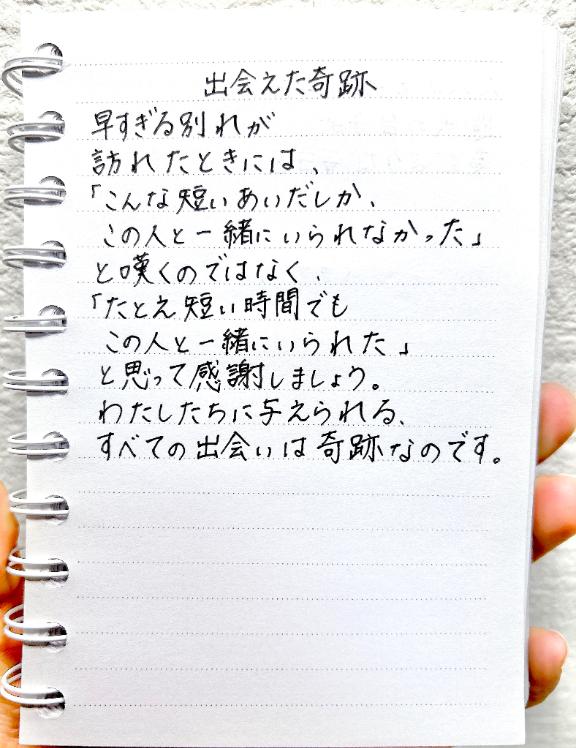 出会えた奇跡
早すぎる別れが
訪れたときには、
「こんな短いあいだしか、
この人と一緒にいられなかった」
と嘆くのではなく、
「たとえ短い時間でも
この人と一緒にいられた」
と思って感謝しましょう。
わたしたちに与えられる、
すべての出会いは奇跡なのです。